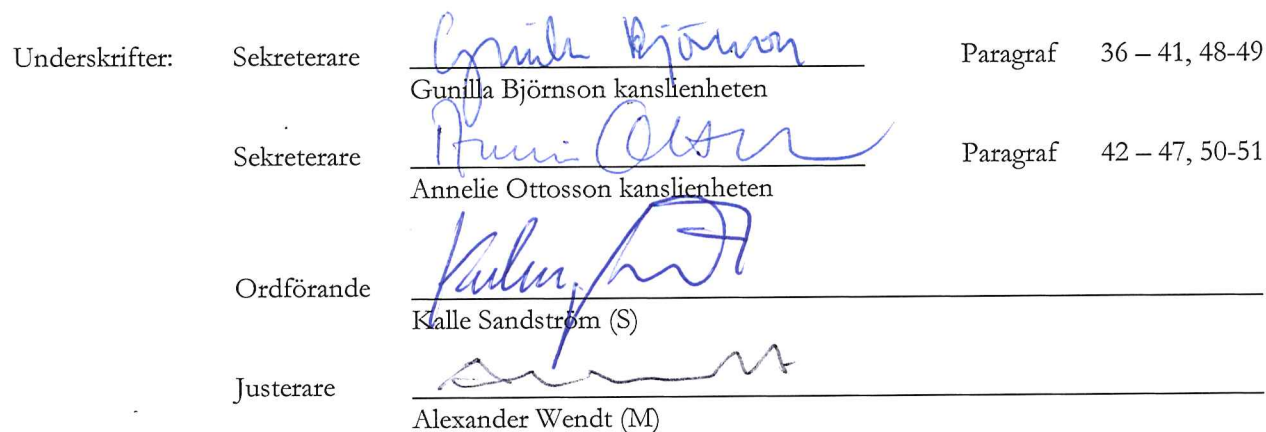 Underskrifter: Sekreterare Gunilla Björnson Paragraf 36 – 41, 48-49
Gunilla Björnson kanslienheten
Sekreterare Paragraf 42 – 47, 50-51
Annelie Ottosson kanslienheten
Ordförande
Kalle Sandström (S)
Justerare
Alexander Wendt (M)